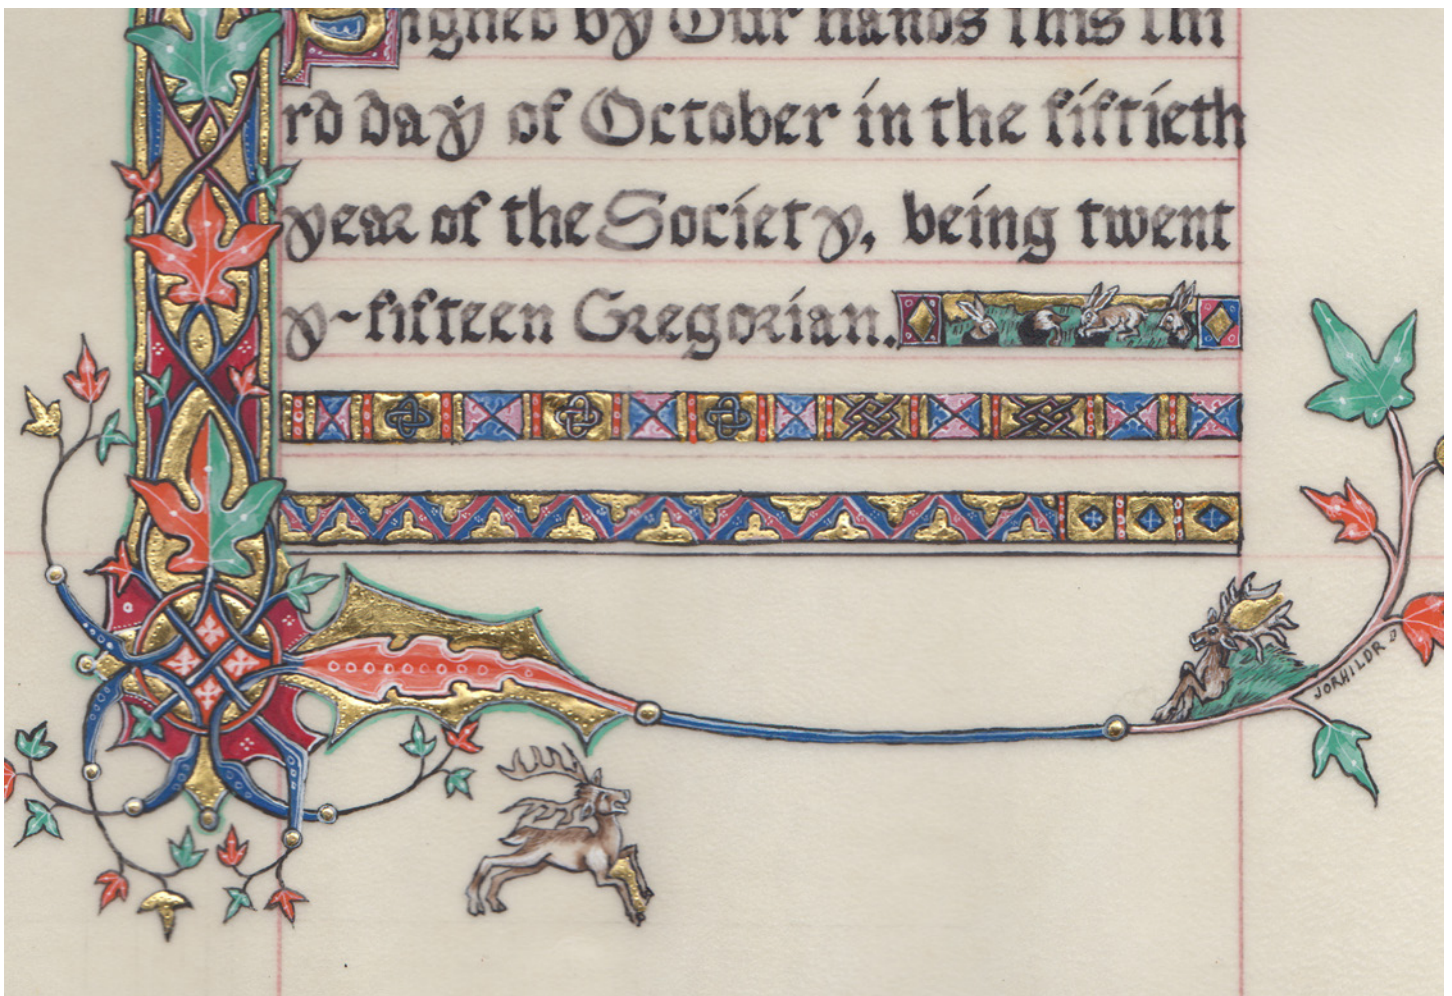 Signed by Our hands this thi
rd day of October in the fiftieth
year of the Society, being twent
y-fifteen Gregorian.
JORHILDR